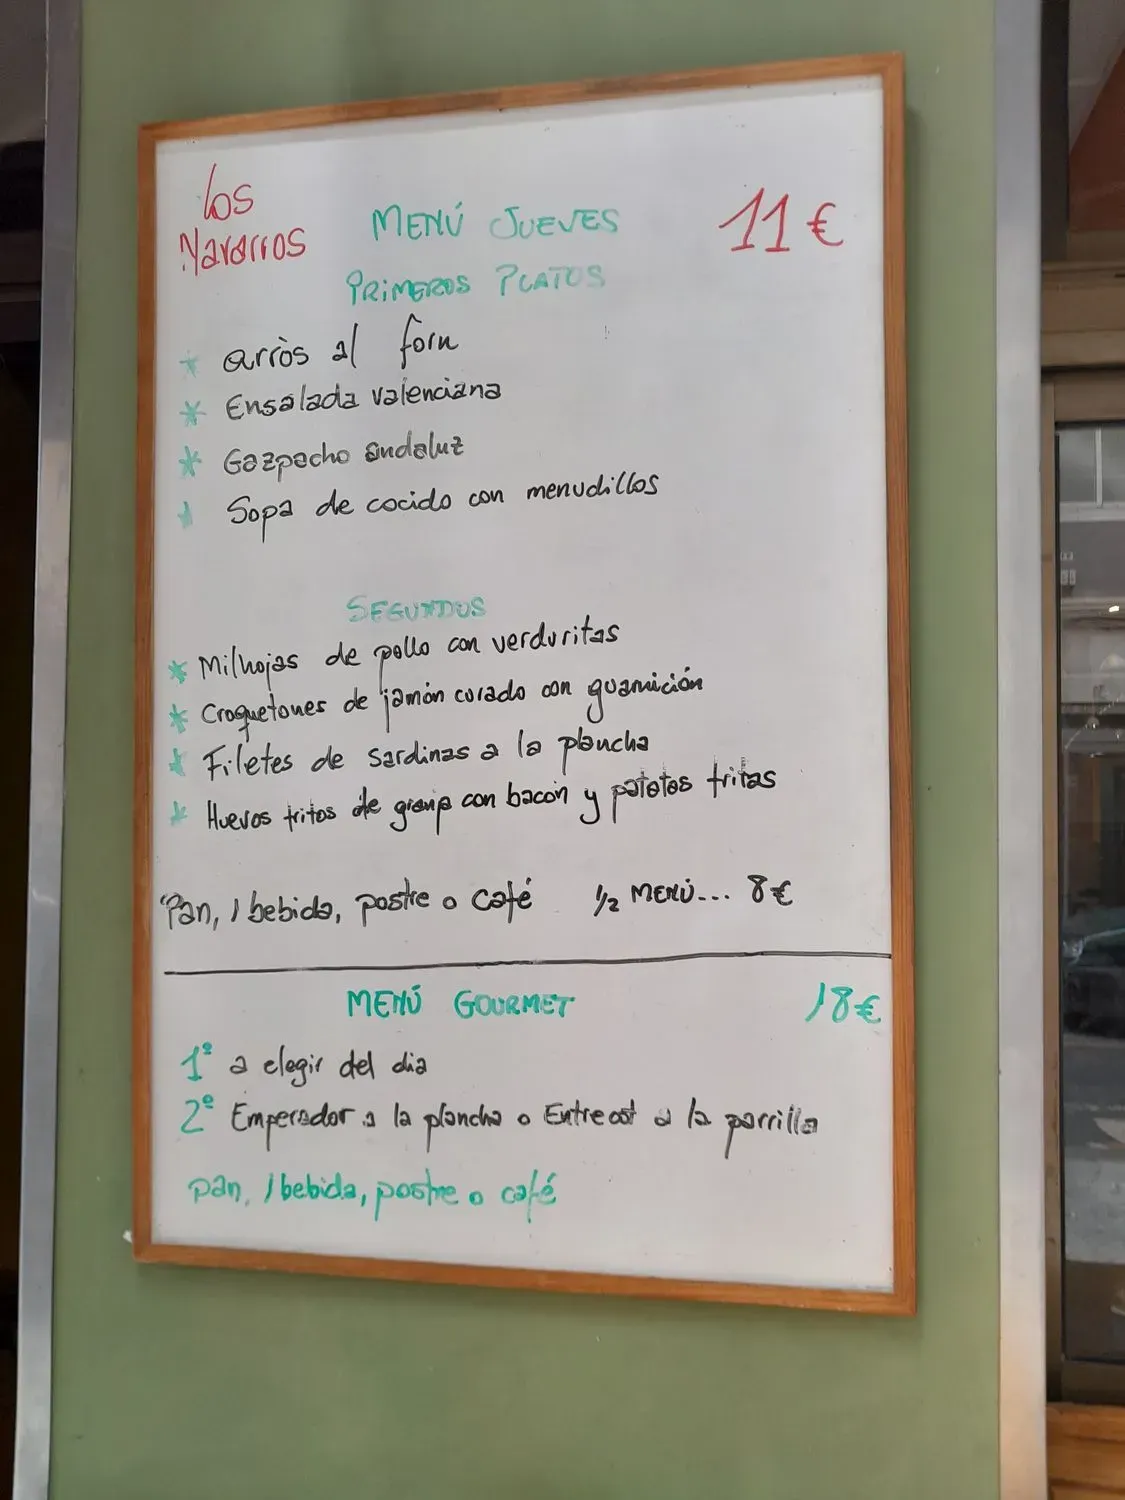 Los
Navarros
MENÚ JUEVES
11€
PRIMEROS PLATOS
* arròs al forn
* Ensalada valenciana
* Gazpacho andaluz
* Sopa de cocido con menudillos
SEGUNDOS
* Milhojas de pollo con verduritas
* Croquetones de jamón curado con guarnición
* Filetes de sardinas a la plancha
* Huevos fritos de granja con bacon y patatas fritas
Pan, 1 bebida, postre o café
1/2 MENÚ... 8€
MENÚ GOURMET
18€
1º a elegir del dia
2º Emperador a la plancha o Entrecot a la parrilla
pan, 1 bebida, postre o café